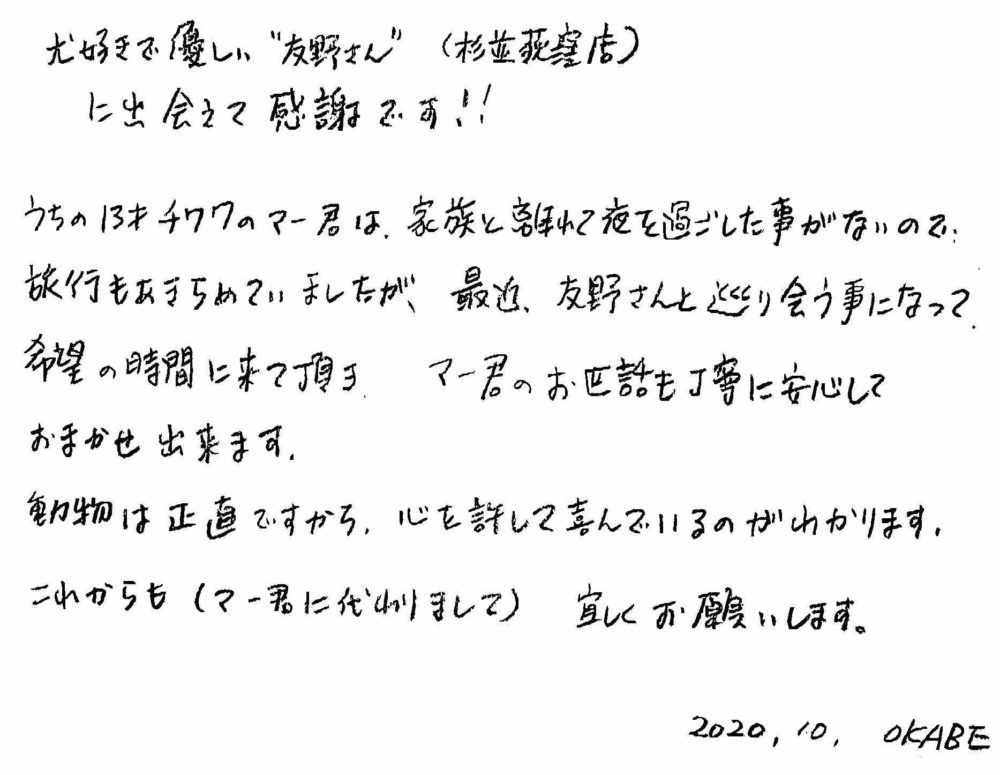 犬好きで優しい"友野さん"(杉並荻窪店)
に出会えて感謝です!!
うちの13才チワワのマー君は、家族と離れて夜を過ごした事がないので、
旅行もあきらめていましたが、最近、友野さんと巡り会う事になって、
希望の時間に来て頂き マー君のお世話も丁寧に安心して
おまかせ出来ます。
動物は正直ですから、心を許して喜んでいるのがわかります。
これからも(マー君に代わりまして) 宜しくお願いします。
2020,10, OKABE